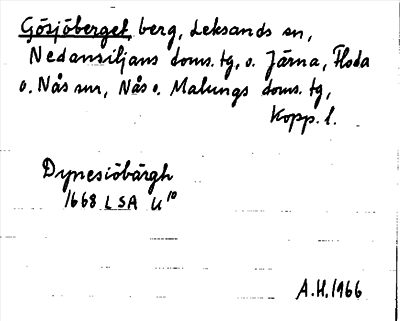 Gösjöberget, berg, Leksands sn,
Nedansiljans doms. tg, o. Järna, Floda
o. Nås snr, Nås o. Malungs doms. tg,
Kopp. l.
Dynesiöbärgh
1668 LSA U¹⁰
A.H. 1966